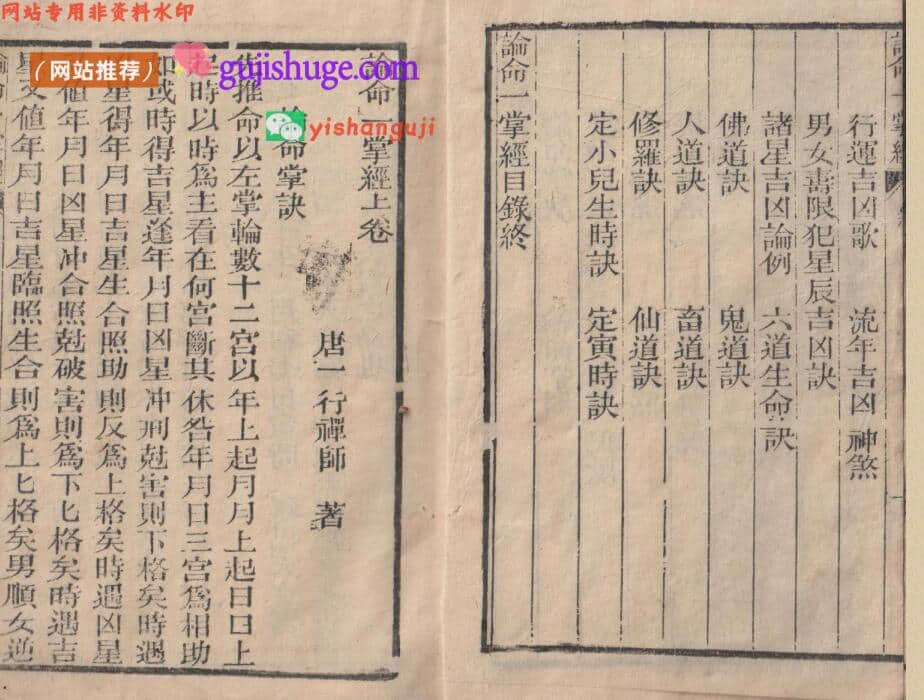 网站专用非资料水印
(网站推荐)
gujishuge.com
yishanguji
論命一掌經
行運吉凶歌　流年吉凶神煞
男女壽限犯星辰吉凶訣
諸星吉凶論例　六道生命訣
佛道訣　鬼道訣
人道訣　畜道訣
修羅訣　仙道訣
定小兒生時訣　定寅時訣
論命一掌經目錄終
論命一掌經上卷
唐一行禪師　著
命掌訣
推命以左掌輪數十二宮以年上起月月上起日日上
起時以時爲主看在何宮斷其休咎年月日三宮爲相助
如或時得吉星逢年月日凶星冲刑尅害則下格矣時遇
星得年月日吉星生合照助則反爲上格矣時遇凶星
值年月日凶星冲合照尅破害則爲下匕格矣時遇吉
星又值年月日吉星臨照生合則爲上匕格矣男順女逆